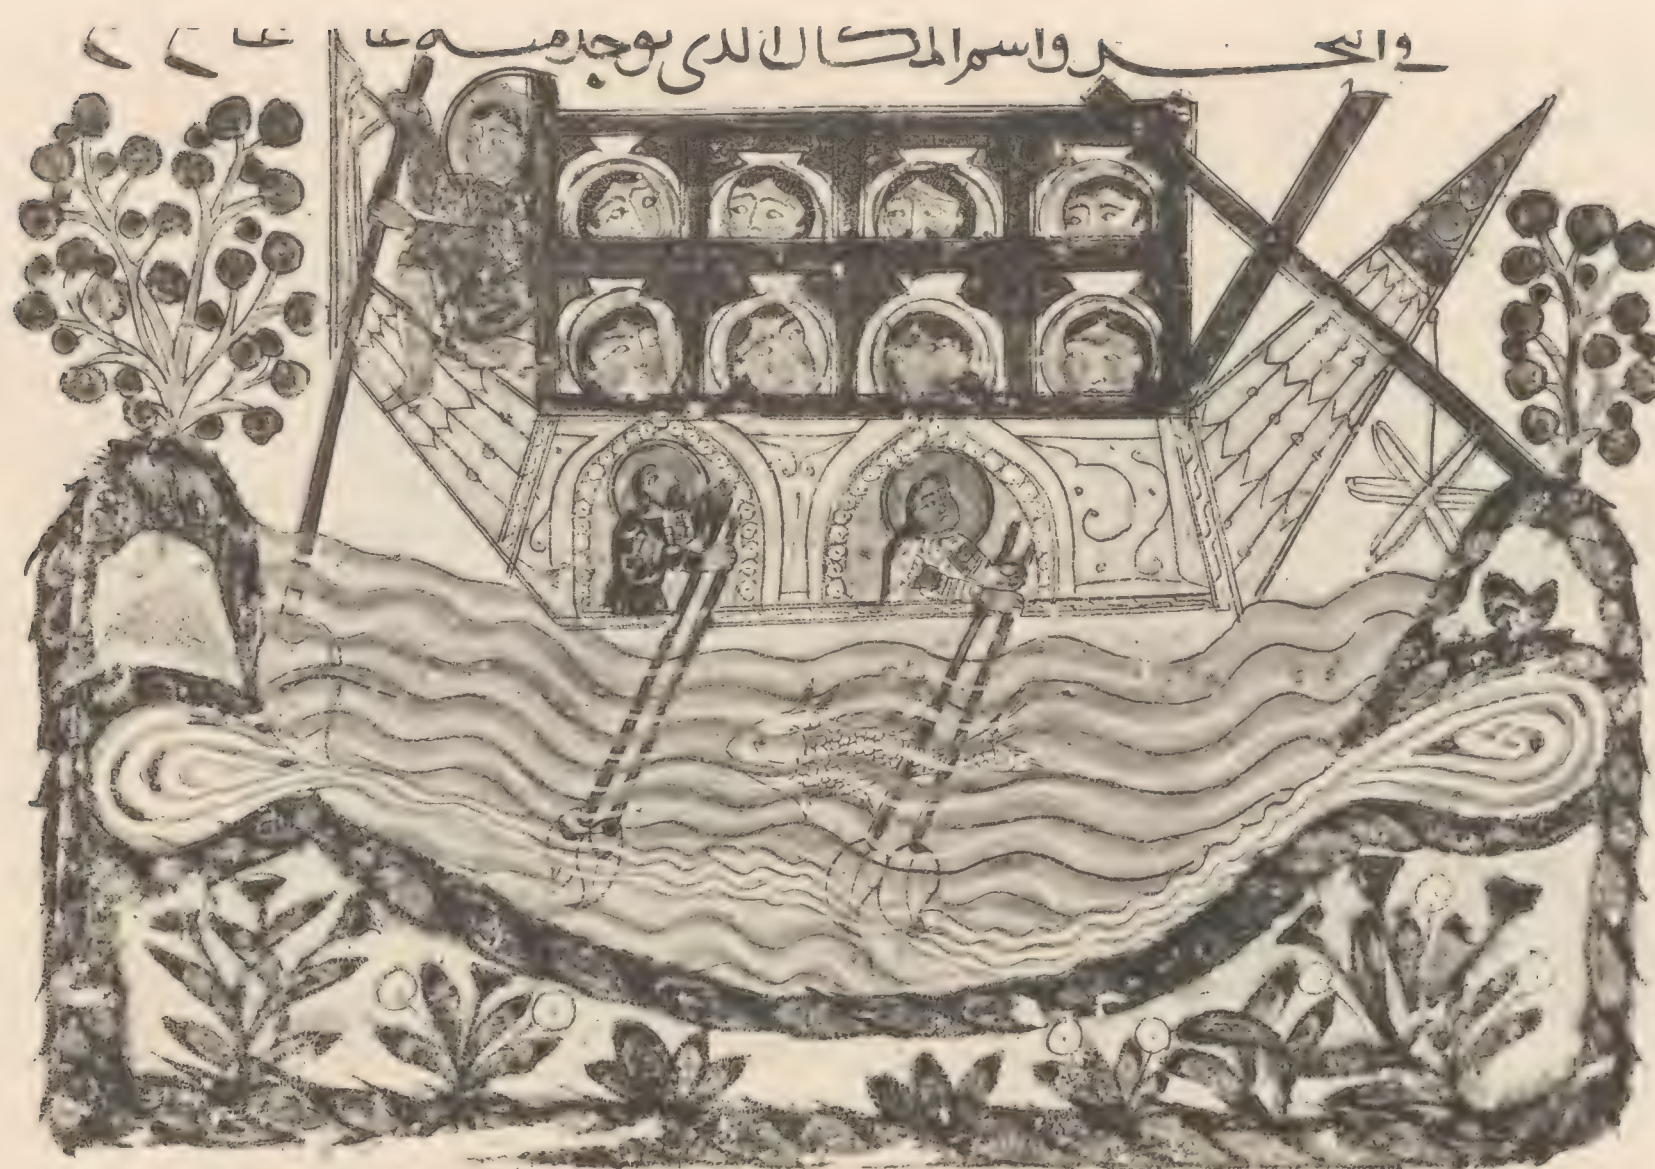 في البحر واسم المكان الذى يوجد فيه